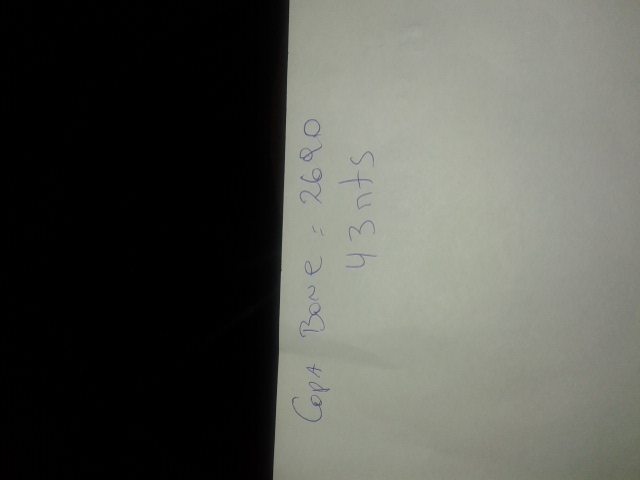 Copa Bone = 2690
43 nts